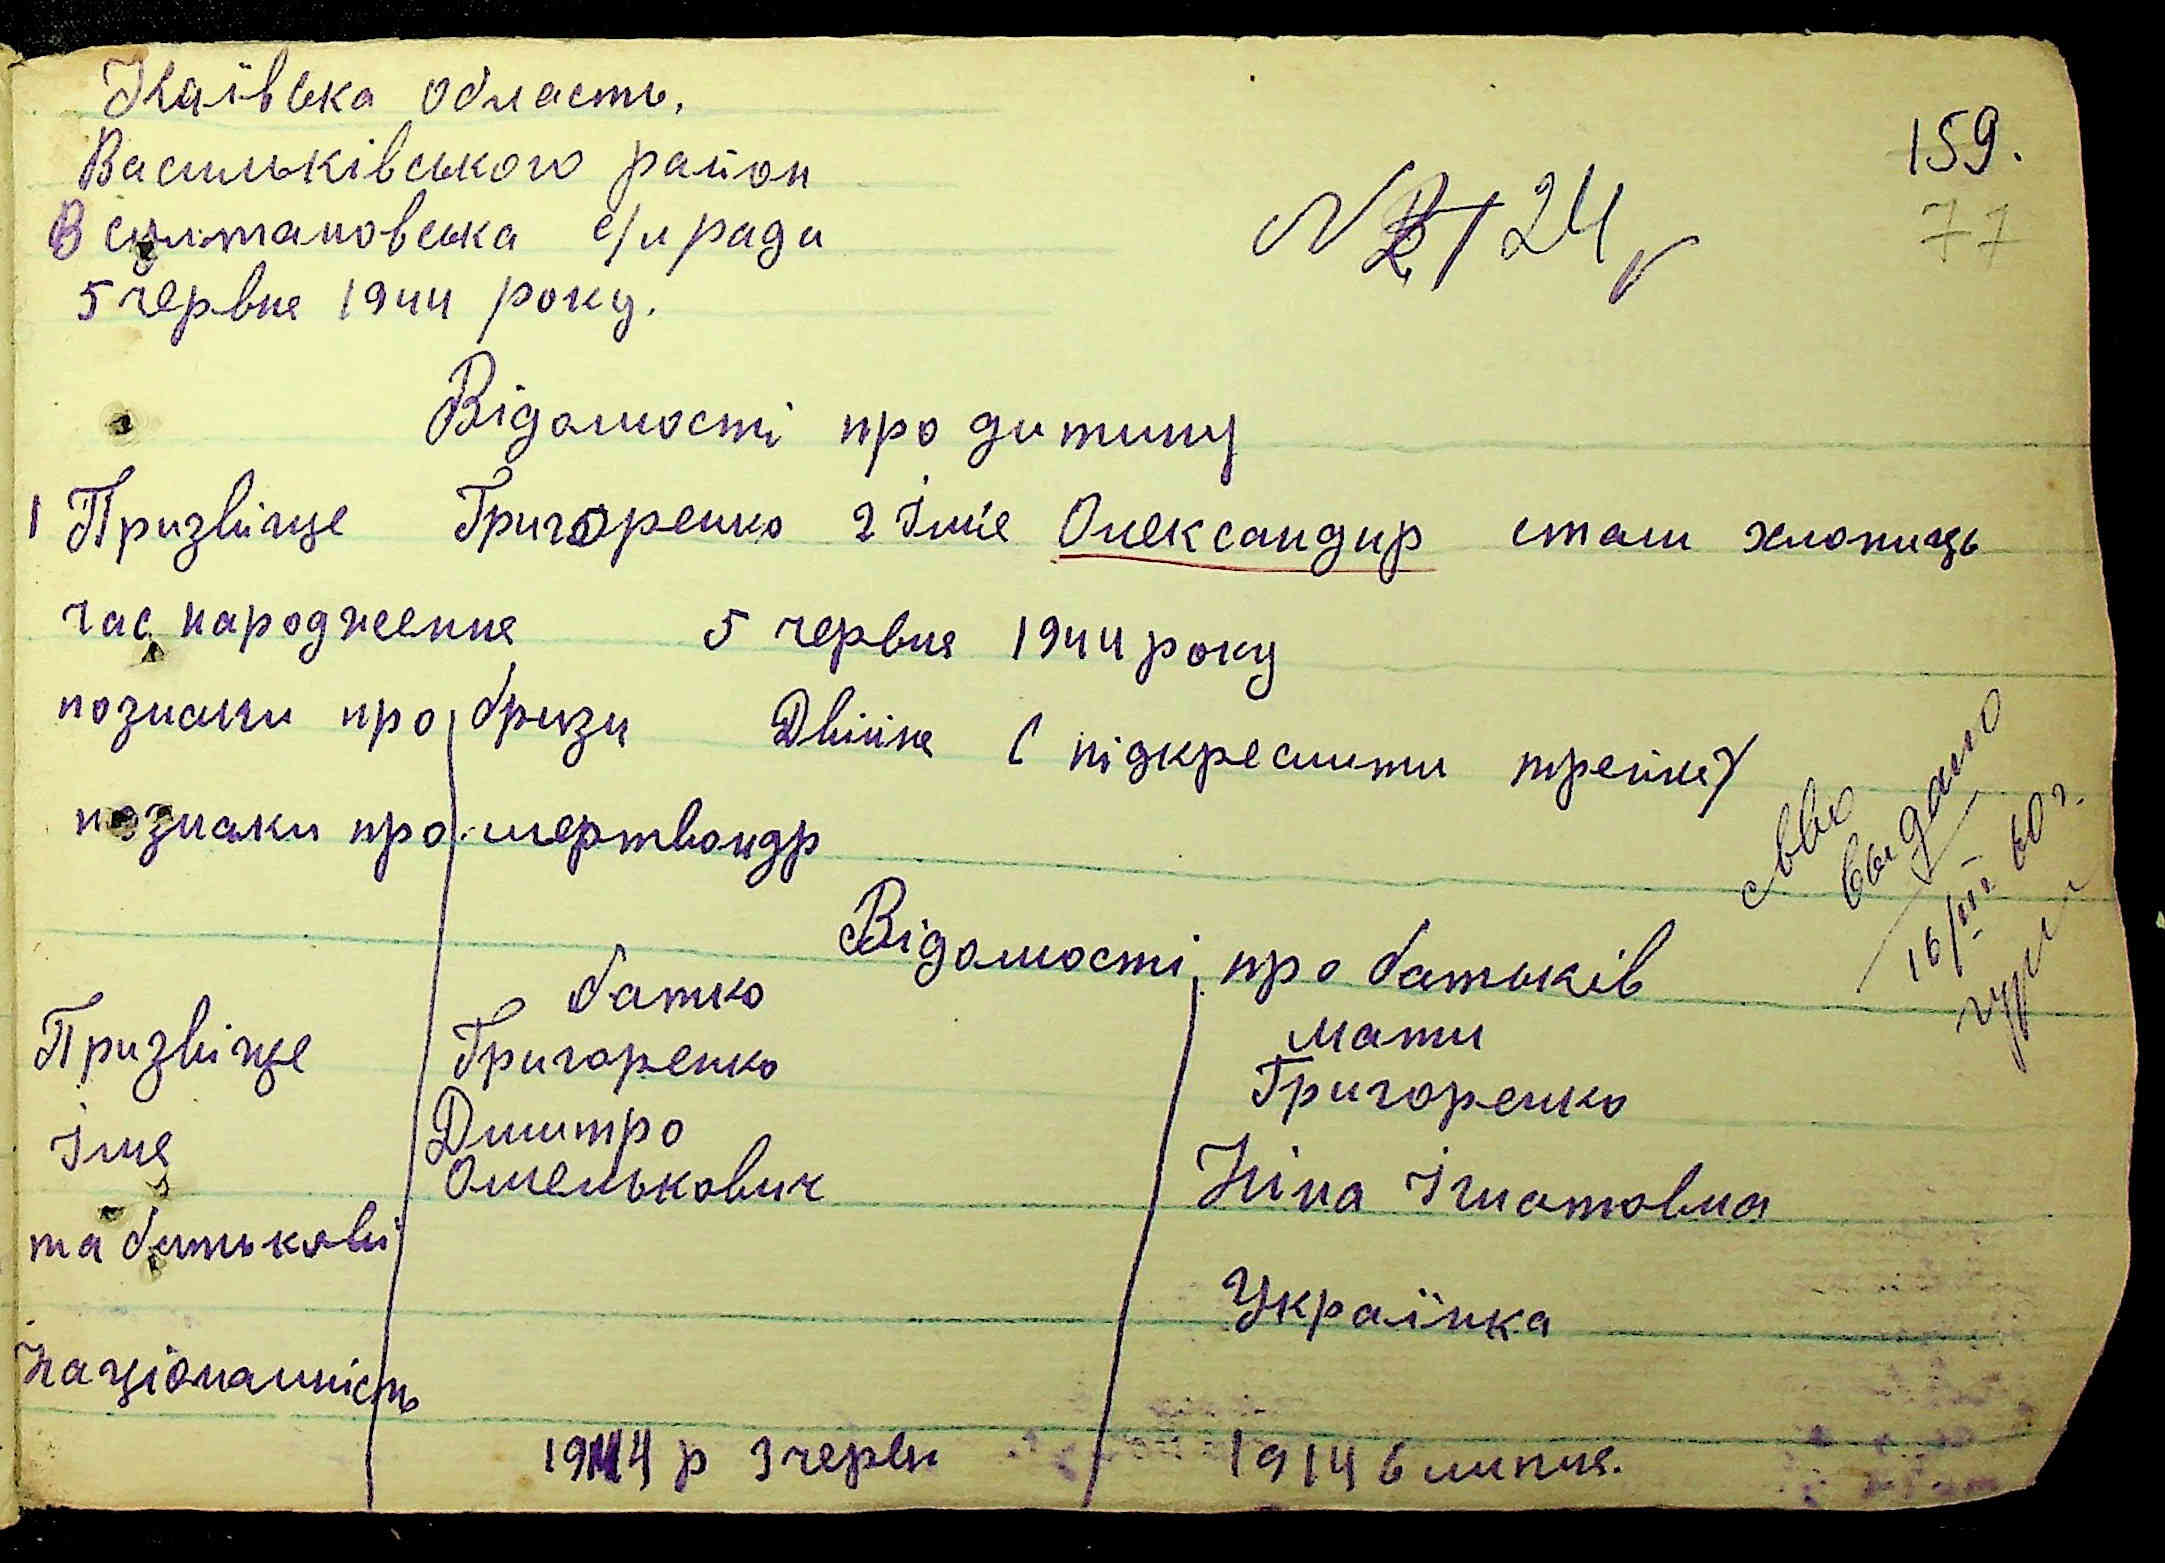 Каівська область.
Васильківського район
В салтановська с/н ради
5 червня 1944 року.
159.
77
№ 24
Відомості про дитину
1 Призвіще Григоренко 2 Імя Олександир стать хлопиць
час народження 5 червня 1944 року
познаки про бризи Двійня ( підкреслити трейня)
познаки про мертвондр
Св-во
выдано
16/III 60 г.
Відомості про батьків
батко
мати
Призвіще Григоренко Григоренко
Імя Дмитро
Омелькович Ніна Ігнатовна
та батькові
Українка
Національність
1914 р 3 червн 1914 6 липня.